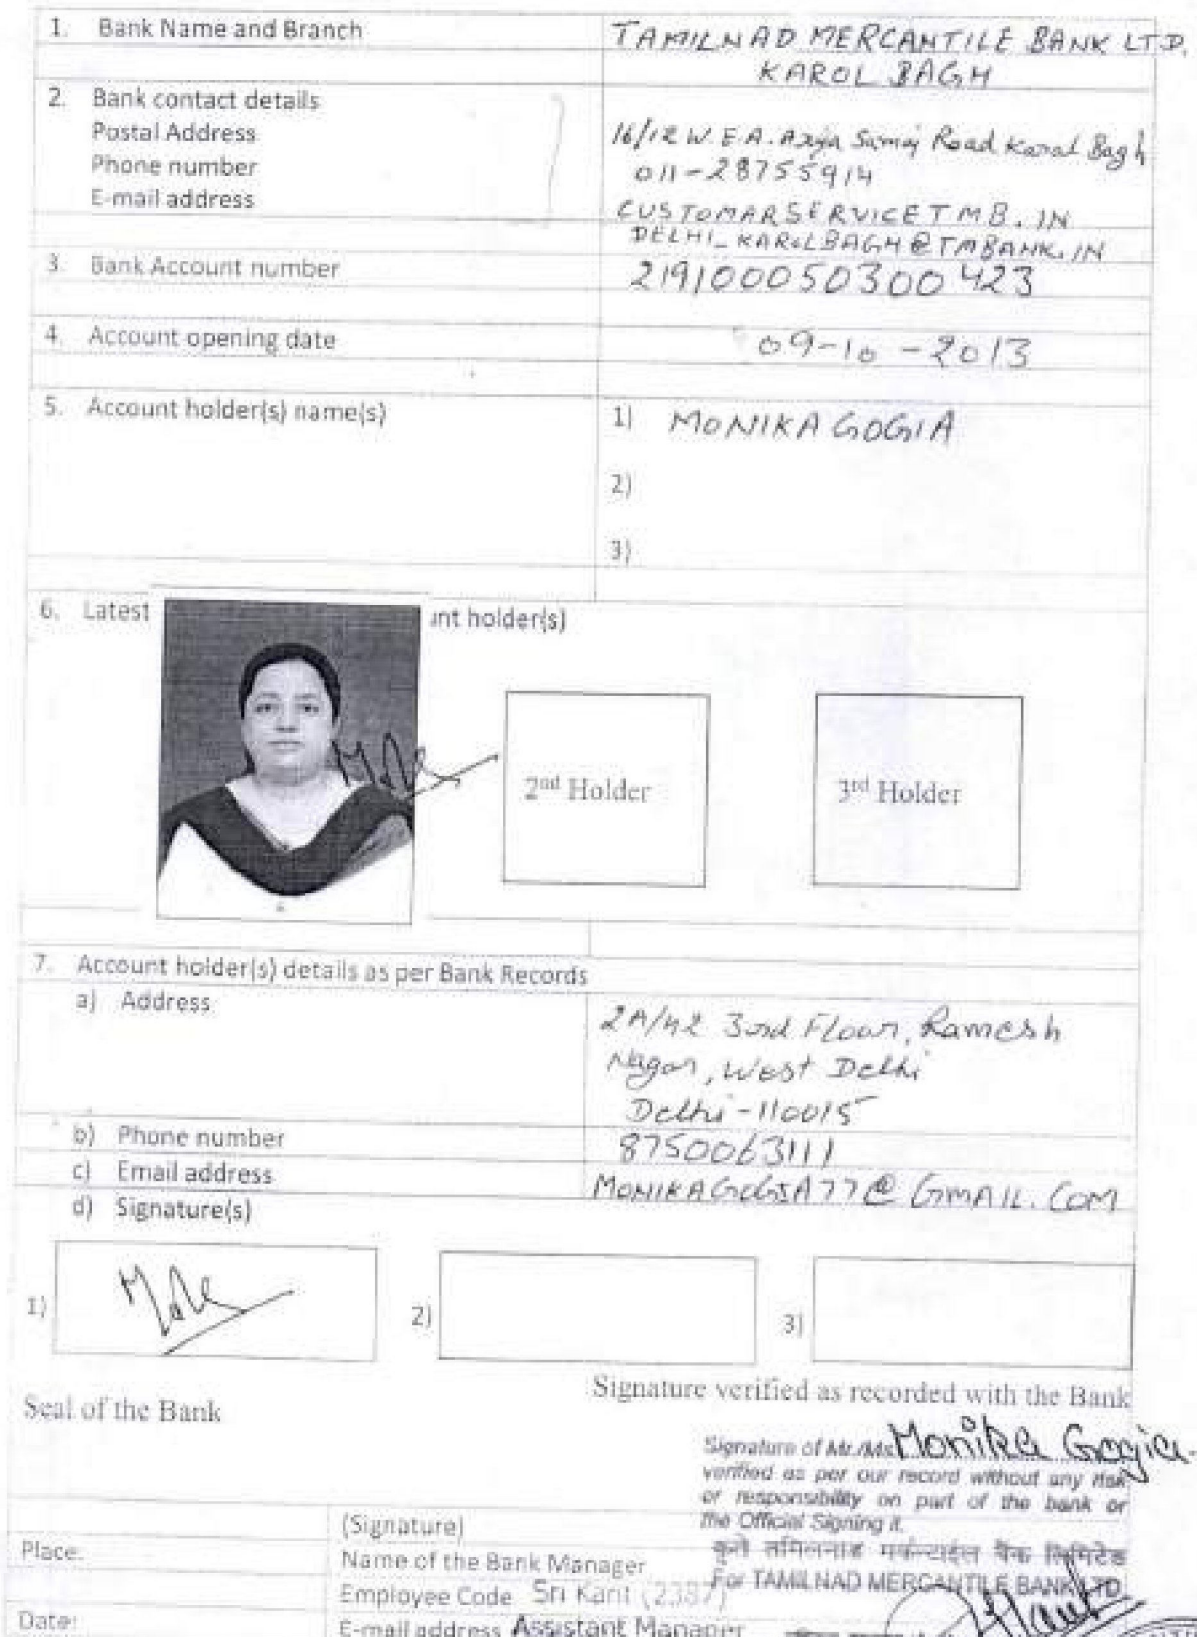 1. Bank Name and Branch
TAMILNAD MERCANTILE BANK LTD.
KAROL BAGH
2. Bank contact details
Postal Address
Phone number
E-mail address
16/12 W.E.A. Arya Samaj Road Karol Bagh
011-28755914
CUSTOMARSERVICETMB.IN
DELHI_KAROLBAGH@TMBANK.IN
3. Bank Account number
219100050300423
4. Account opening date
09-10-2013
5. Account holder(s) name(s)
1) MONIKA GOGIA
2)
3)
6. Latest
unt holder(s)
2nd Holder
3rd Holder
7. Account holder(s) details as per Bank Records
a) Address
2A/42 3rd Floor, Ramesh
Nagar, West Delhi
Delhi-110015
b) Phone number
8750063111
c) Email address
MONIKAGOGIA77@GMAIL.COM
d) Signature(s)
1)
2)
3)
Seal of the Bank
Signature verified as recorded with the Bank
Signature of Mr./Ms. Monika Gogia
verified as per our record without any risk
or responsibility on part of the bank or
the Official Signing it.
कृते तमिलनाड मर्कन्टाईल बैंक लिमिटेड
For TAMILNAD MERCANTILE BANK LTD
Place:
(Signature)
Name of the Bank Manager
Employee Code Sri Kant (2387)
Date:
E-mail address Assistant Manager